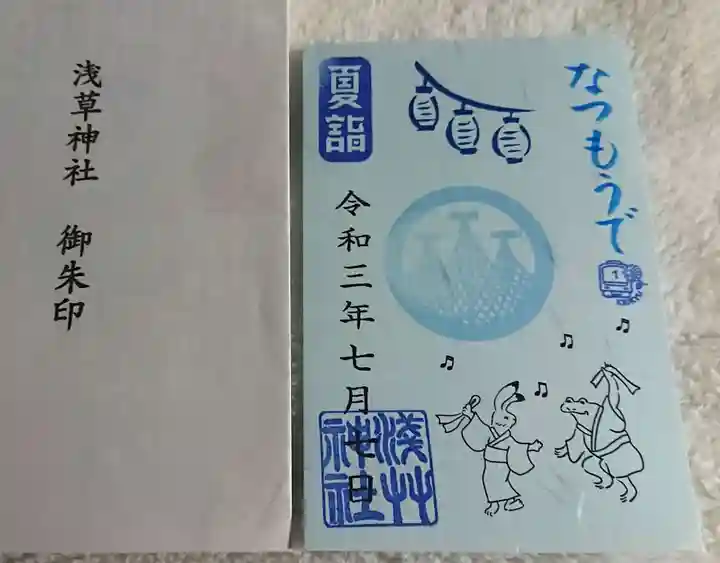 浅草神社 御朱印
なつもうで
1
夏詣
令和三年七月七日
淺草神社